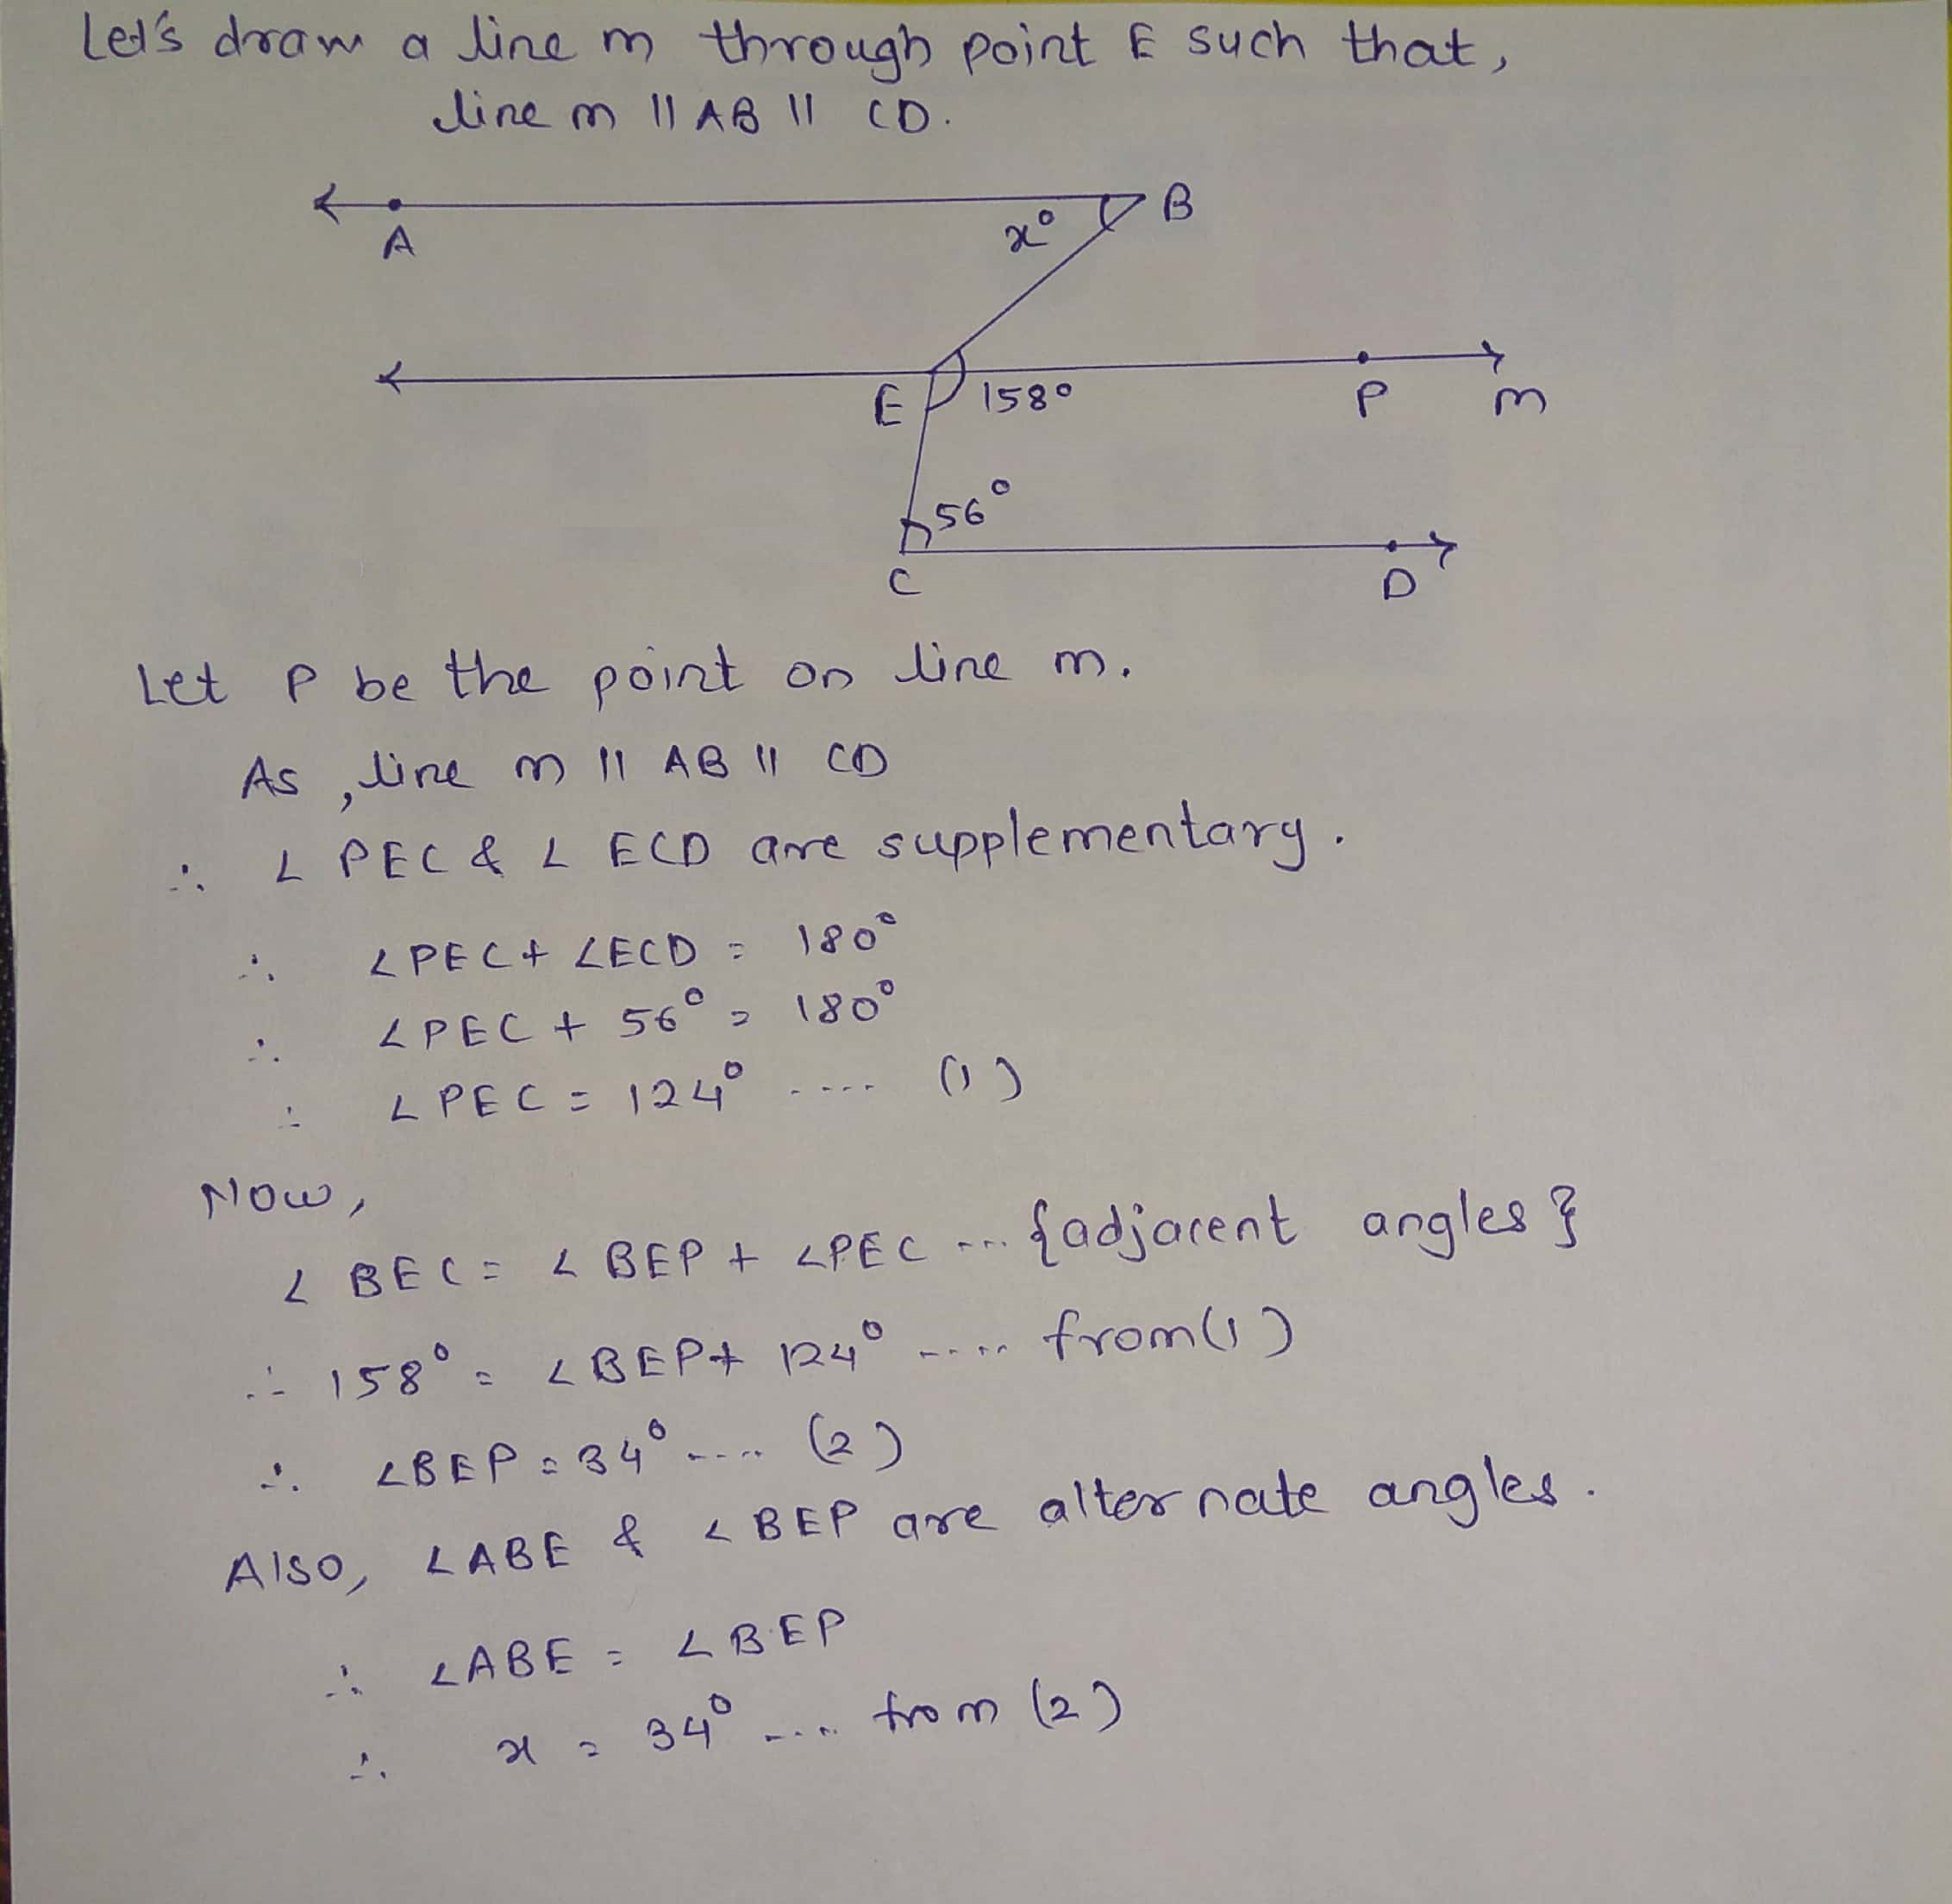 Let's draw a line m through point E such that,
line m || AB || CD.
B
x°
A
E 158°
P m
56°
C
D
Let P be the point on line m.
As, line m || AB || CD
∴ ∠ PEC & ∠ ECD are supplementary.
∴ ∠PEC + ∠ECD = 180°
∴ ∠PEC + 56° = 180°
∴ ∠PEC = 124° .... (1)
Now,
∠ BEC = ∠ BEP + ∠PEC ... {adjacent angles}
∴ 158° = ∠BEP + 124° ..... from (1)
∴ ∠BEP = 34° ..... (2)
Also, ∠ABE & ∠BEP are alternate angles.
∴ ∠ABE = ∠BEP
∴ x = 34° .... from (2)